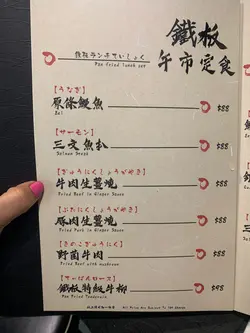 鐵板
午市定食
鉄板ランチていしょく
Pan Fried lunch set
【うなぎ】
原條鰻魚 $88
Eel
【サーモン】
三文魚扒 $88
Salmon Steak
【ぎゅうにくしょうがやき】
牛肉生薑燒 $88
Fried Beef in Ginger Sauce
【ぶたにくしょうがやき】
豚肉生薑燒 $88
Fried Pork in Ginger Sauce
【きのこぎゅうにく】
野菌牛肉 $88
Fried Beef with mushroom
【てっぱんロース】
鐵板特級牛柳 $98
Pan Fried Tenderloin